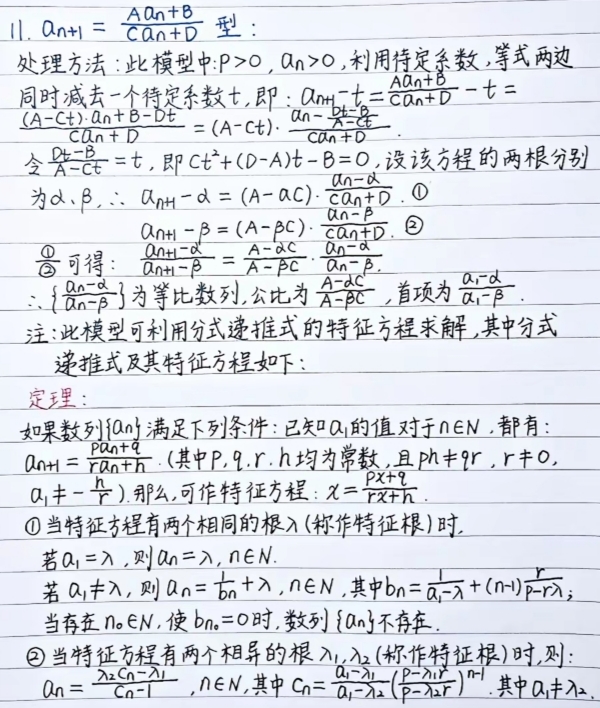 11. aₙ₊₁ = (Aaₙ+B)/(Caₙ+D) 型:
处理方法:此模型中:P>0, aₙ>0,利用待定系数,等式两边
同时减去一个待定系数t,即: aₙ₊₁-t = (Aaₙ+B)/(Caₙ+D) - t =
((A-Ct)·aₙ+B-Dt)/(Caₙ+D) = (A-Ct)·(aₙ-(Dt-B)/(A-Ct))/(Caₙ+D).
令 (Dt-B)/(A-Ct) = t, 即 Ct²+(D-A)t-B=0,设该方程的两根分别
为α、β, ∴ aₙ₊₁-α = (A-αC)·(aₙ-α)/(Caₙ+D). ①
aₙ₊₁-β = (A-βC)·(aₙ-β)/(Caₙ+D). ②
①/② 可得: (aₙ₊₁-α)/(aₙ₊₁-β) = (A-αC)/(A-βC)·(aₙ-α)/(aₙ-β).
∴{(aₙ-α)/(aₙ-β)}为等比数列,公比为 (A-αC)/(A-βC), 首项为 (a₁-α)/(a₁-β).
注:此模型可利用分式递推式的特征方程求解,其中分式
递推式及其特征方程如下:
定理:
如果数列{aₙ}满足下列条件:已知a₁的值对于n∈N,都有:
aₙ₊₁ = (paₙ+q)/(raₙ+h).(其中P,q,r,h均为常数,且ph≠qr, r≠0,
a₁≠-h/r).那么,可作特征方程: x = (px+q)/(rx+h).
①当特征方程有两个相同的根λ(称作特征根)时,
若a₁=λ,则aₙ=λ,n∈N.
若a₁≠λ,则aₙ = 1/bₙ + λ, n∈N,其中bₙ = 1/(a₁-λ) + (n-1) r/(p-rλ);
当存在n₀∈N,使bₙ₀=0时,数列{aₙ}不存在.
②当特征方程有两个相异的根λ₁,λ₂(称作特征根)时,则:
aₙ = (λ₂Cₙ-λ₁)/(Cₙ-1), n∈N,其中 Cₙ = (a₁-λ₁)/(a₁-λ₂) ((p-λ₁r)/(p-λ₂r))ⁿ⁻¹.其中a₁≠λ₂.